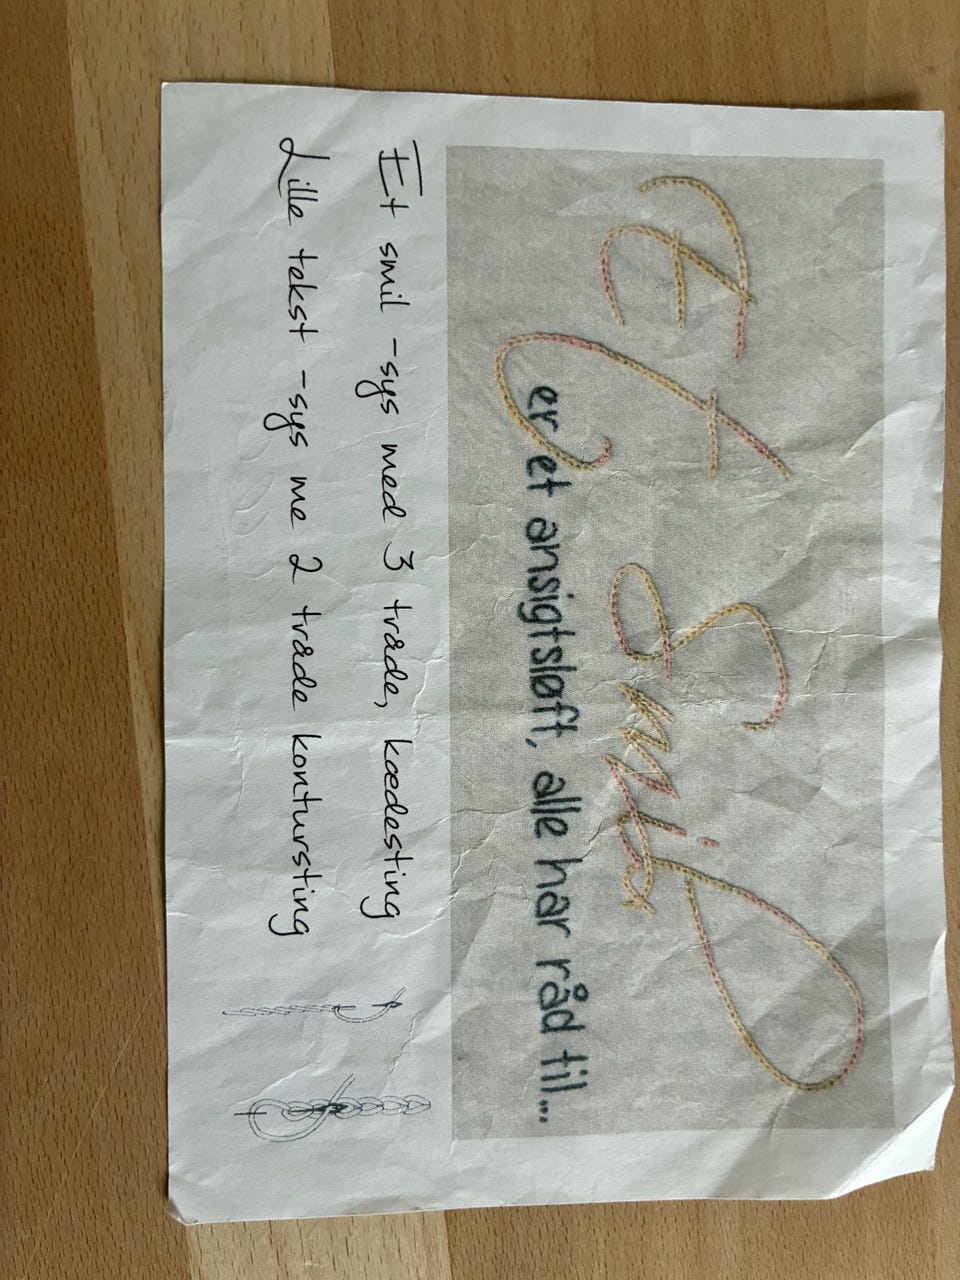 Et Smil
er et ansigtsløft, alle har råd til...
Et smil - sys med 3 tråde, kædesting
Lille tekst - sys me 2 tråde kontursting